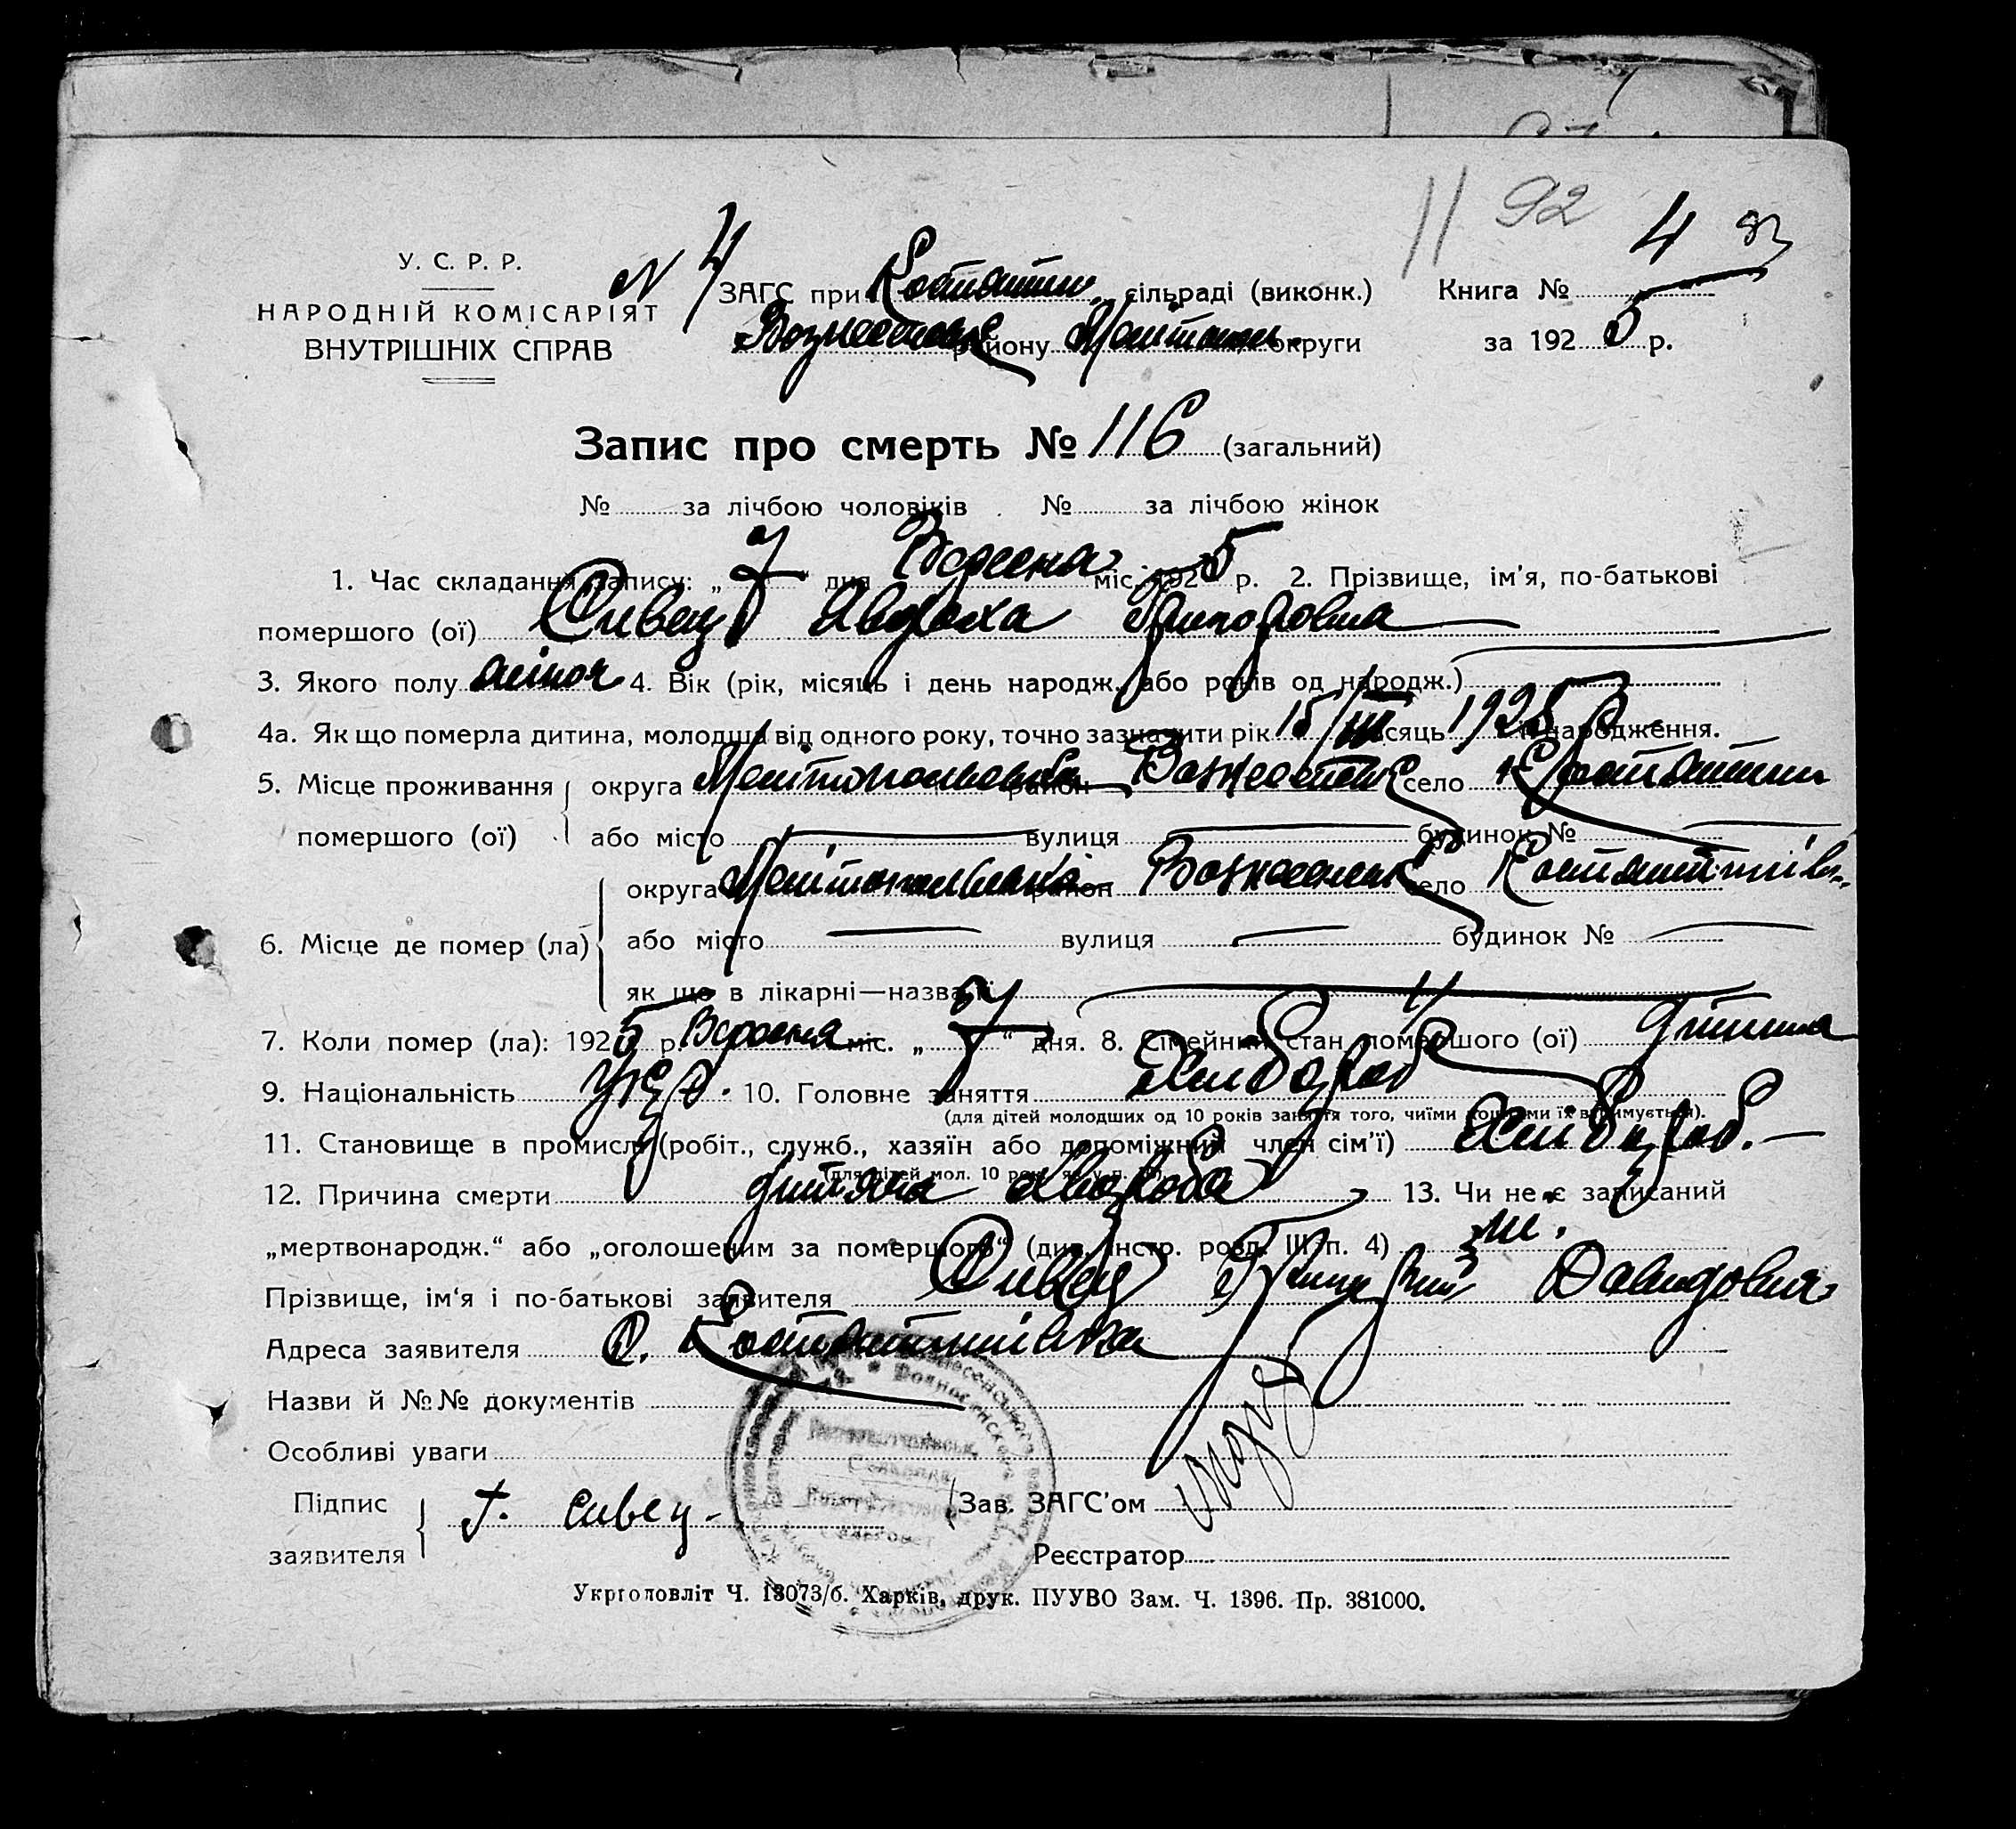 11 92 4 93
У. С. Р. Р.
НАРОДНІЙ КОМІСАРІЯТ
ВНУТРІШНІХ СПРАВ
N 4 ЗАГС при Костянтин. сільраді (виконк.) Книга №
району Меліт округи за 1925 р.
Запис про смерть № 116 (загальний)
№ за лічбою чоловіків . № за лічбою жінок
1. Час складання запису: „7“ дня Вересня міс. 1925 р. 2. Прізвище, ім'я, по-батькові
помершого (ої) Сивец Явдоха Григоровна
3. Якого полу жіноч 4. Вік (рік, місяць і день народж. або років од народж.)
4а. Якщо померла дитина, молодша від одного року, точно зазначити рік 15/III місяць 1925 р народження.
5. Місце проживання округа Мелітопольська район Вознесенськ село Костянтин
помершого (ої) або місто вулиця будинок №
округа Мелітопольська район Вознесенськ село Костянтинівк
6. Місце де помер (ла) або місто вулиця будинок №
як що в лікарні—назва її
7. Коли помер (ла): 1925 р. Вересня міс. „7“ дня. 8. Сімейний стан помершого (ої) дитина
9. Національність Укр. 10. Головне заняття Хлібороб
(для дітей молодших од 10 років заняття того, чиїми коштами їх втримується).
11. Становище в промислі (робіт., служб., хазяїн або допоміжний член сім'ї) Хлібороб.
(для дітей мол. 10 рок. як у п. 10).
12. Причина смерти дитяча хвороба 13. Чи не є записаний
„мертвонародж.“ або „оголошеним за помершого“ (див. інстр. розд. III п. 4) ні.
Прізвище, ім‘я і по-батькові заявителя Сивец Григорий Давидович
Адреса заявителя С. Костянтинівка
Назви й №№ документів
Особливі уваги
Підпис
заявителя
Г. Сивец
Зав. ЗАГС'ом
Реєстратор
Укрголовліт Ч. 13073/б. Харків, друк. ПУУВО Зам. Ч. 1396. Пр. 381000.